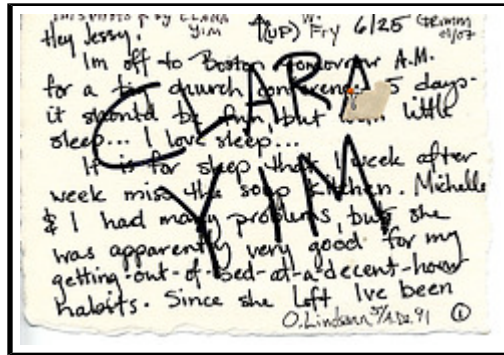 THIS PHOTO BY CLARA
YIM
(UP) W. Fry 6/25 GRIMM
01/07
Hey Jessy!
Im off to Boston tomorrow A.M.
for a church conference. 5 days.
it should be fun, but little
sleep... I love sleep...
It is for sleep that I week after
week miss the soup kitchen. Michelle
& I had many problems, but she
was apparently very good for my
getting-out-of-bed-at-a-decent-hour
habits. Since she left Ive been
CLARA
YIM
①